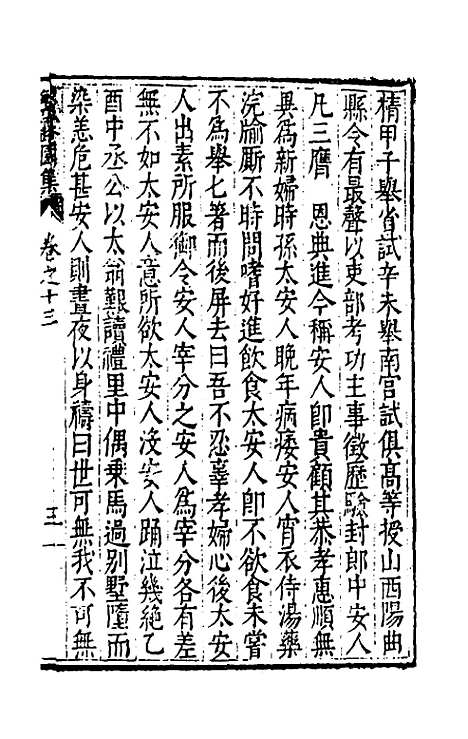 精甲子舉省試辛未舉南宮試俱高等授山西陽曲
縣令有最聲以吏部考功主事徵歷驗封郎中安人
凡三膺　恩典進今稱安人卽貴顧其恭孝惠順無
異為新婦時孫太安人晚年病痿安人宵衣侍湯藥
浣牏厠不時問嗜好進飲食太安人卽不欲食未嘗
不為舉七箸而後屏去曰吾不忍辜孝婦心後太安
人出素所服御令安人宰分之安人為宰分各有差
無不如太安人意所欲太安人沒安人踊泣幾絕乙
酉中丞公以太翁艱讀禮里中偶乗馬過别墅墮而
染恙危甚安人則晝夜以身禱曰世可無我不可無
集
卷之十三
三